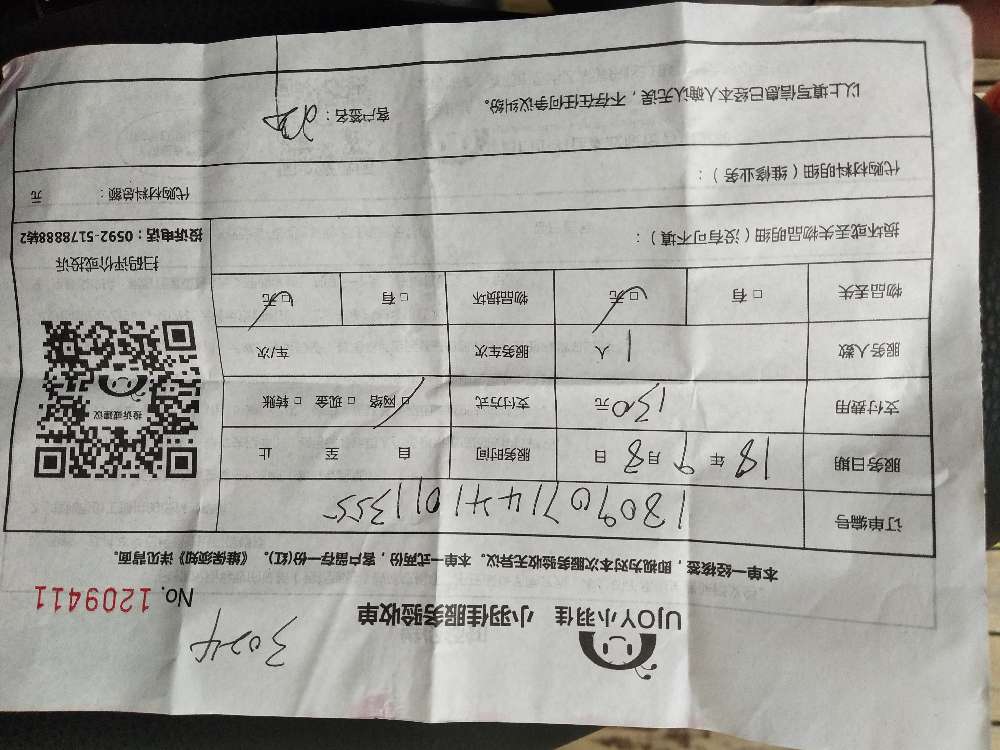 3024
UJOY小羽佳 小羽佳服务验收单
No. 1209411
本单一经核签，即视为对本次服务验收无异议。本单一式两份，客户留存一份(红)。《维保须知》详见背面。
订单编号 180907144101355
服务日期 18 年 9 月 8 日 服务时间 自 至 止
支付费用 130 元 支付方式 □ 网络 □ 现金 □ 转账
服务人数 1 人 服务车次 车/次
物品丢失 □ 有 □ 无 物品损坏 □ 有 □ 无
投诉或建议
扫码评价或投诉
投诉电话：0592-5178888转2
损坏或丢失物品明细（没有可不填）：
代购材料明细（维修业务）：
代购材料总额： 元
以上填写信息已经本人确认无误，不存在任何争议纠纷。
客户签名：